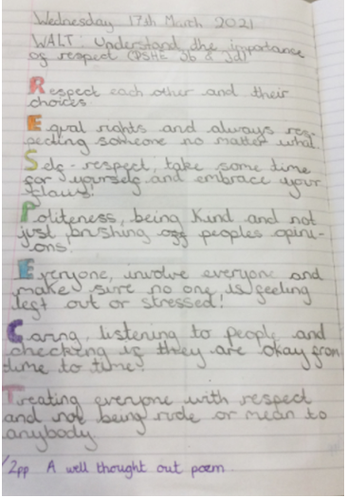 Wednesday 17th March 2021
WALT: Understand the importance
of respect (PSHE 3b & 3d)
Respect each other and their
choices.
Equal rights and always res-
pecting someone no matter what.
Self-respect, take some time
for yourself and embrace your
flaws!
Politeness, being kind and not
just brushing off peoples opini-
ons.
Everyone, involve everyone and
make sure no one is feeling
left out or stressed!
Caring, listening to people and
checking if they are okay from
time to time!
Treating everyone with respect
and not being rude or mean to
anybody.
/2pp A well thought out poem.